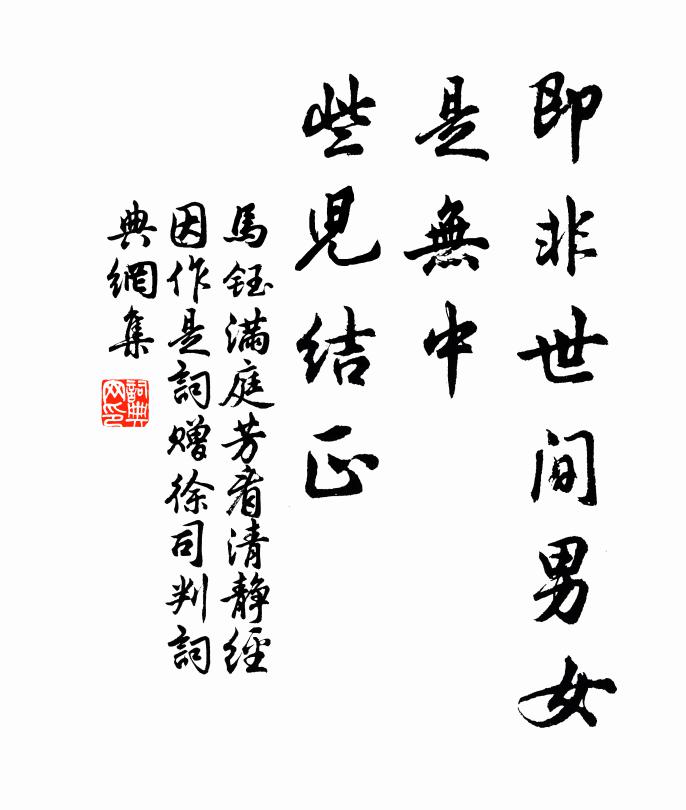 即非世间男女
是無中
些児结正
馬鈺满庭芳看清静經
因作是詞赠徐司判詞
典網集
詞典网印